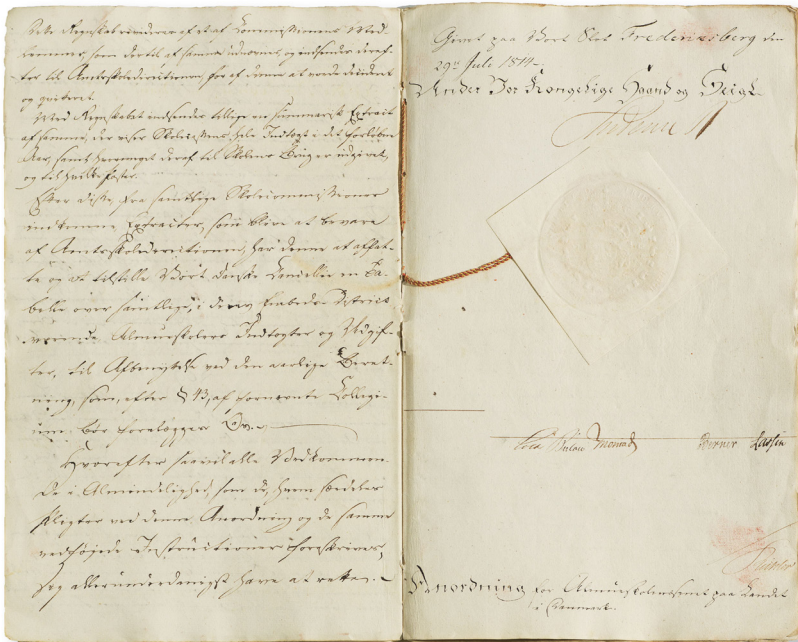 Dette Regnskab revideres af et af Commissionens Med-
lemmer, som dertil af samme udnævnes, og indsendes deref-
ter til Amtsskoledirectionen, for af denne at vorde decideret
og qviteret.
Med Regnskabet indsendes tillige en summarisk Extract
af samme, der viser Skolecassens hele Indtægt i det forløbne
Aar, samt hvormeget deraf til Skolens Brug er udgivet,
og til hvilke Poster.
Efter disse, fra samtlige Skolecommissioner
indkomne Extracter, som blive at bevare
af Amtsskoledirectionen, har denne at affat-
te og at tilstille Vort danske Cancellie en Ta-
belle over samtlige, i deres Embeds-District
værende Almueskolers Indtægter og Udgif-
ter, til Afbenyttelse ved den aarlige Beret-
ning, som, efter § 43, af fornævnte Collegi-
um bør forelægges Os.
Hvorefter saavel alle Vedkommen-
de i Almindelighed, som de, hvem særdeles
Pligter ved denne Anordning og de samme
vedføjede Instructioner foreskrives,
sig allerunderdanigst have at rette.
Givet paa Vort Slot Frederiksberg den
29de Juli 1814.
Under Vor Kongelige Haand og Seigl.
Bülow Monrad Berner Lassen
Anordning for Almueskolevæsenet paa Landet
i Danmark.